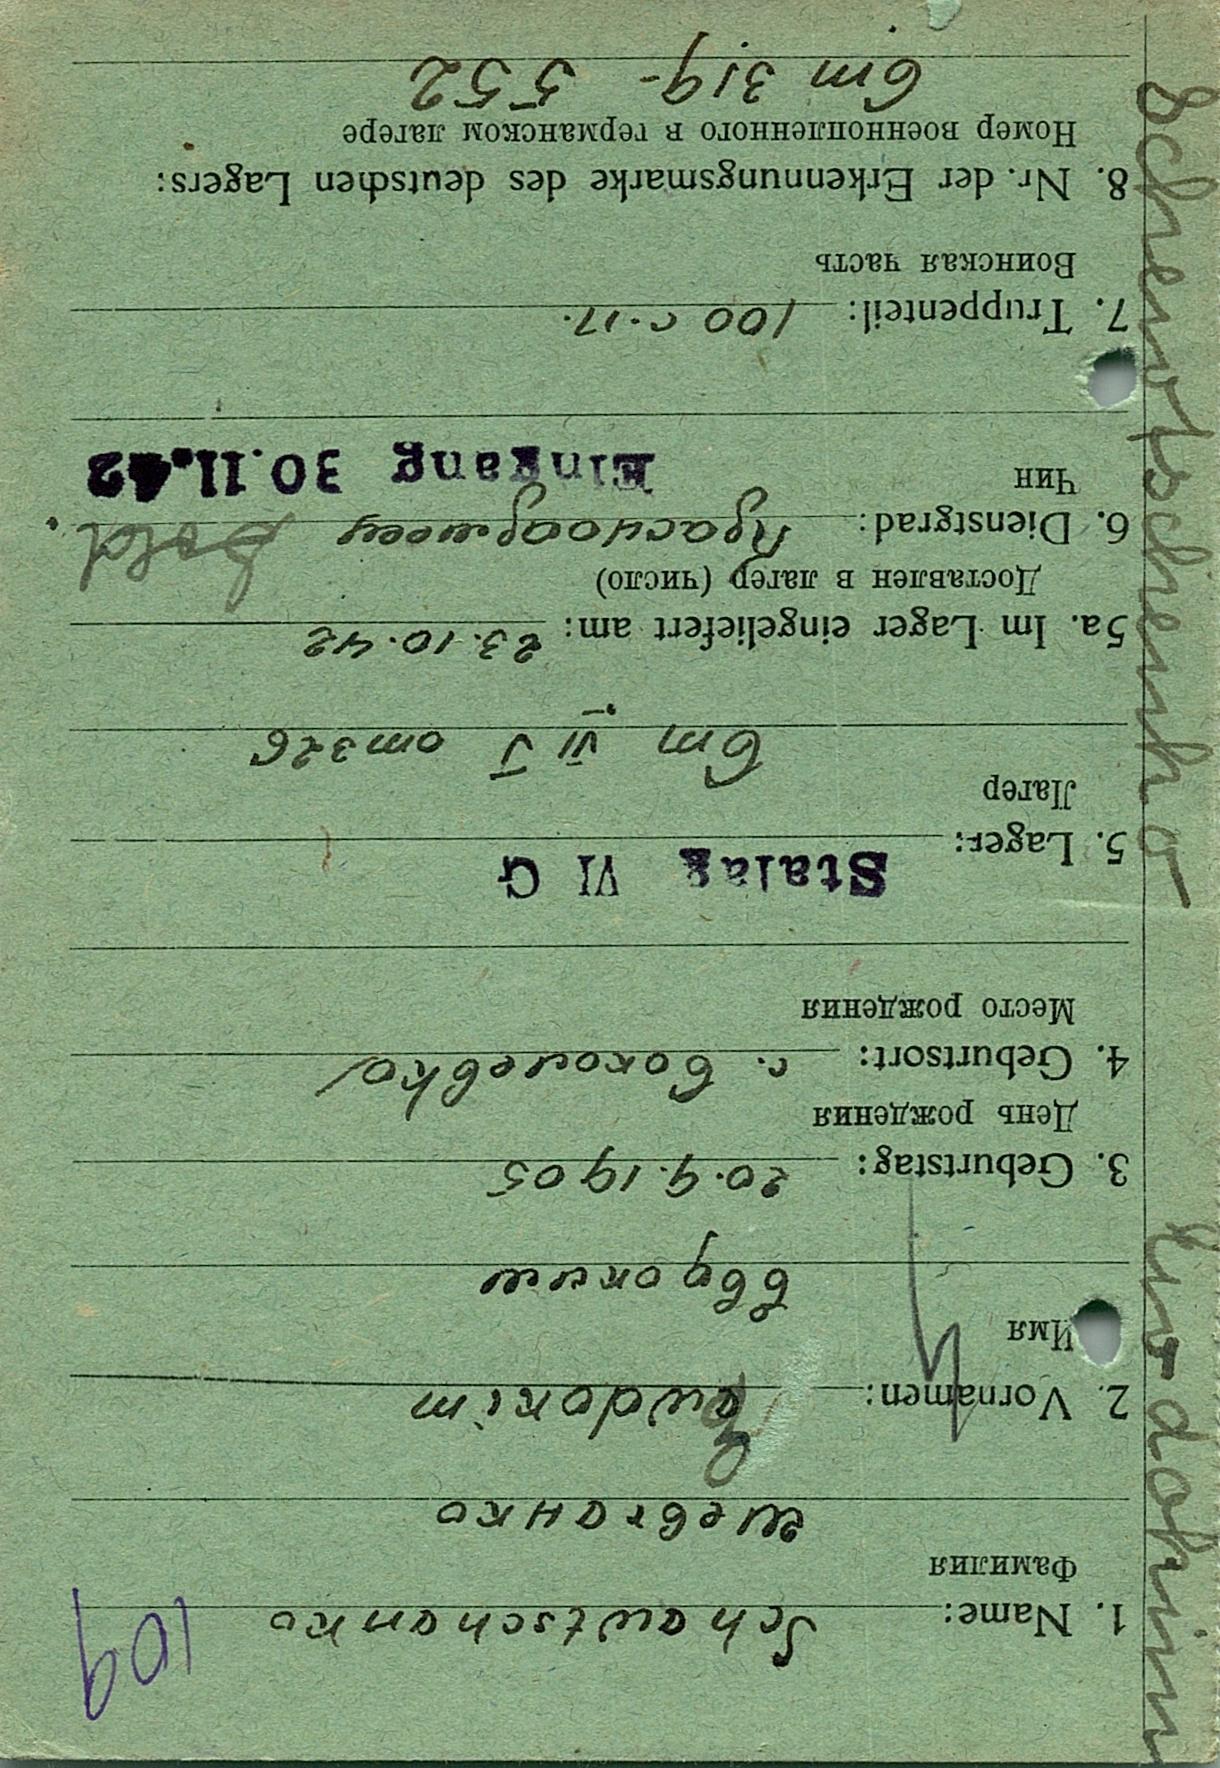 109
1. Name: Schawtschanko
Фамилия
шевчанко
2. Vornamen: Awdokim
Имя
Евдоким
3. Geburtstag: 20.9.1905
День рождения
4. Geburtsort: с.
Место рождения
Stalag VI G
5. Lager:
Лагерь
Ст VI J от 326
5a. Im Lager eingeliefert am: 23.10.42
Доставлен в лагерь (число)
6. Dienstgrad: Красноармеец Sold.
Чин
Eingang 30.11.42
7. Truppenteil: 100 с.п.
Воинская часть
8. Nr. der Erkennungsmarke des deutschen Lagers:
Номер военнопленного в германском лагере
Ст 319 - 552
Schewtschenko Ewdokim